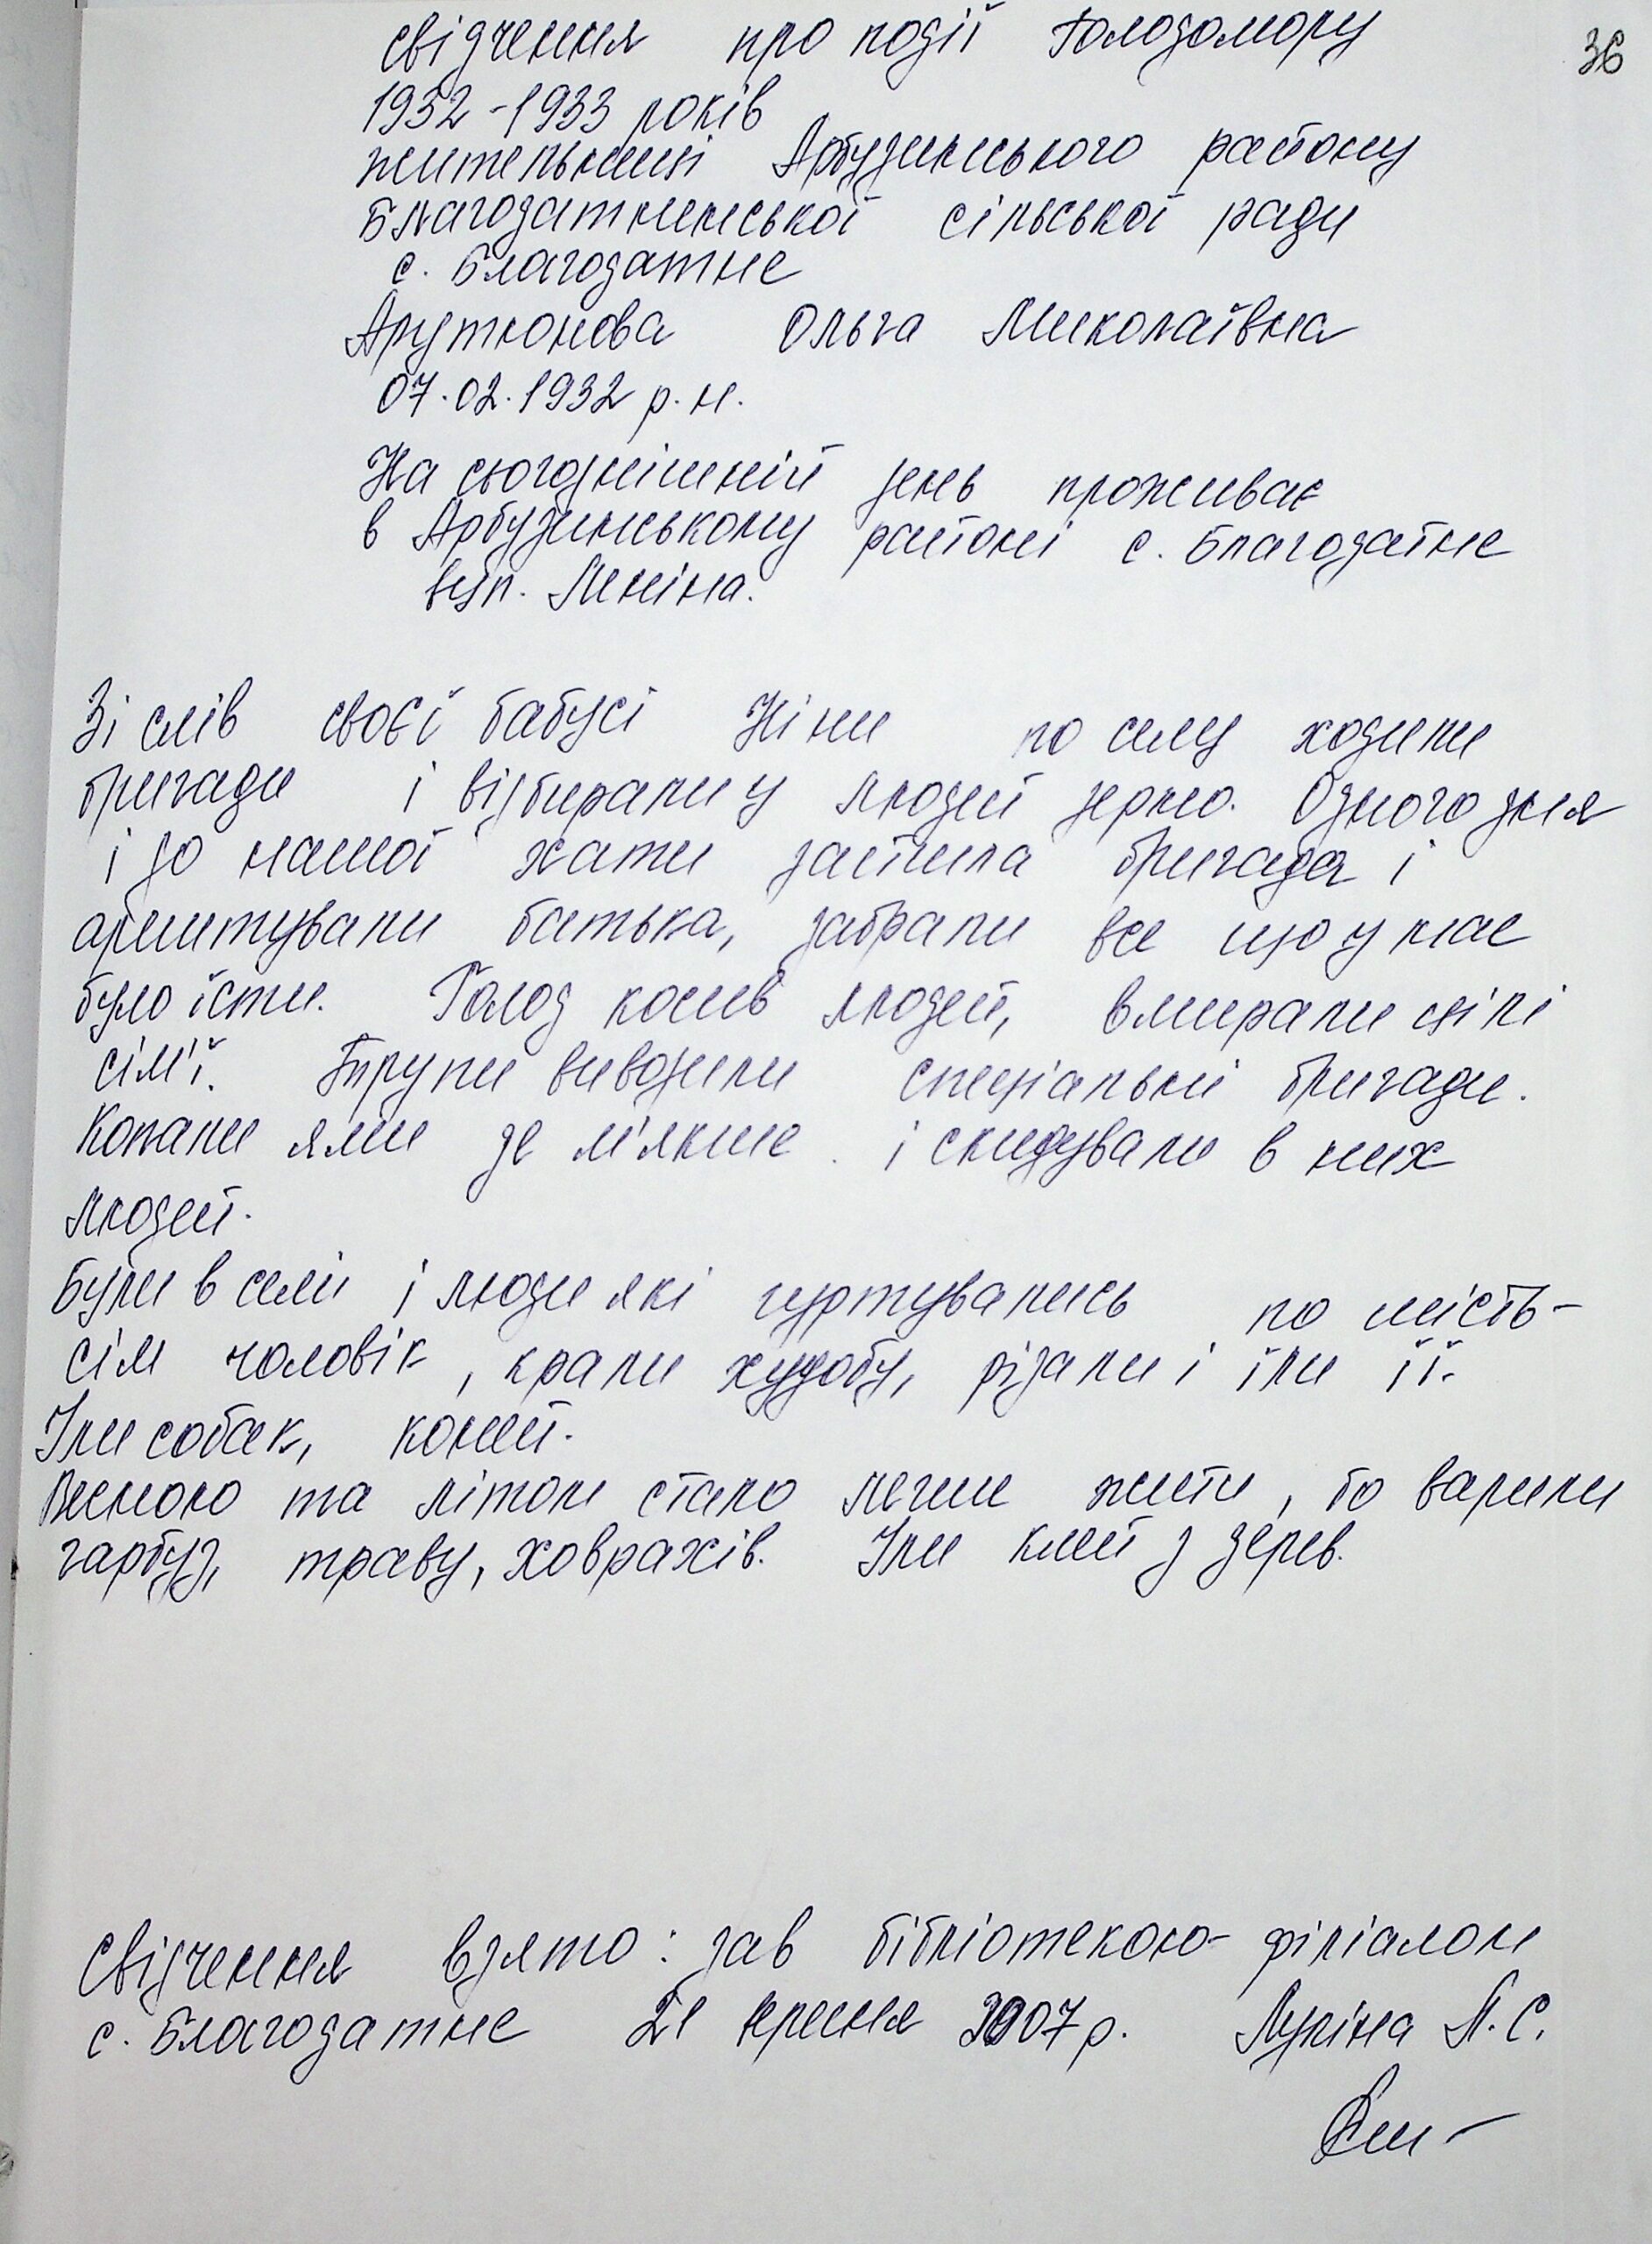 36
Свідчення про події Голодомору
1932-1933 років
жительниці Арбузинського району
Благодатненської сільської ради
с. Благодатне
Арутюнова Ольга Миколаївна
07.02.1932 р.н.
На сьогоднішній день проживає
в Арбузинському районі с. Благодатне
вул. Леніна.
Зі слів своєї бабусі Ніни по селу ходили
бригади і відбирали у людей зерно. Одного дня
і до нашої хати зайшла бригада і
арештували батька, забрали все що у нас
було їсти. Голод косив людей, вмирали цілі
сім'ї. Трупи вивозили спеціальні бригади.
Копали ями де м'якше і скидували в них
людей.
Були в селі і люди які гуртувались по шість-
сім чоловік, крали худобу, різали і їли її.
Їли собак, коней.
Весною та літом стало легше жити, бо варили
гарбуз, траву, ховрахів. Їли клей з дерев.
Свідчення взято: зав бібліотекою-філіалом
с. Благодатне 21 червня 2007 р. Луніна Л.С.